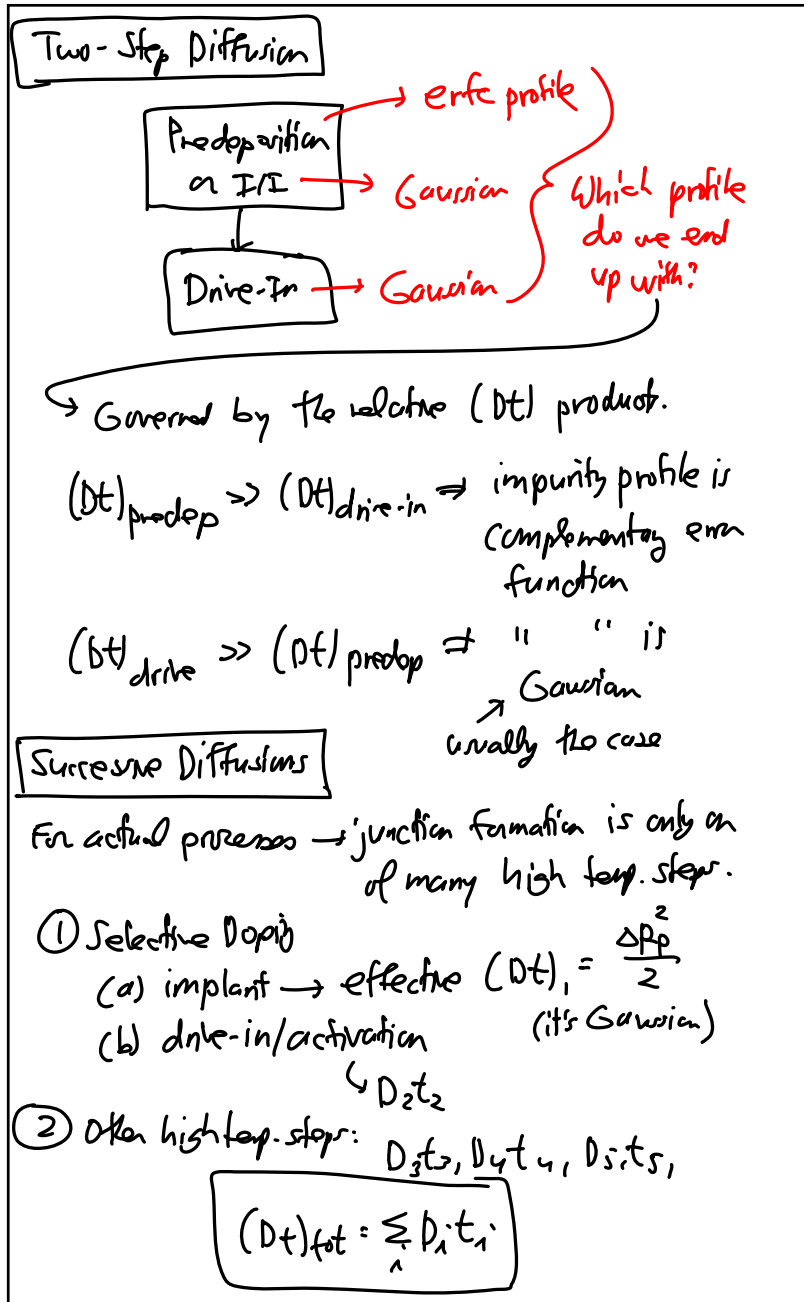 Two-Step Diffusion
Predeposition → erfc profile
or I/I → Gaussian
Drive-In → Gaussian
Which profile
do we end
up with?
→ Governed by the relative (Dt) product.
(Dt)predep >> (Dt)drive-in ⇒ impurity profile is
complementary error
function
(Dt)drive >> (Dt)predep ⇒ " " is
Gaussian
usually the case
Successive Diffusions
For actual processes → junction formation is only on
of many high temp. steps.
① Selective Doping
(a) implant → effective (Dt)₁ = ΔRp²/2
(it's Gaussian)
(b) drive-in/activation
↳ D₂t₂
② Other high temp. steps: D₃t₃, D₄t₄, D₅t₅,
(Dt)tot = Σᵢ Dᵢtᵢ